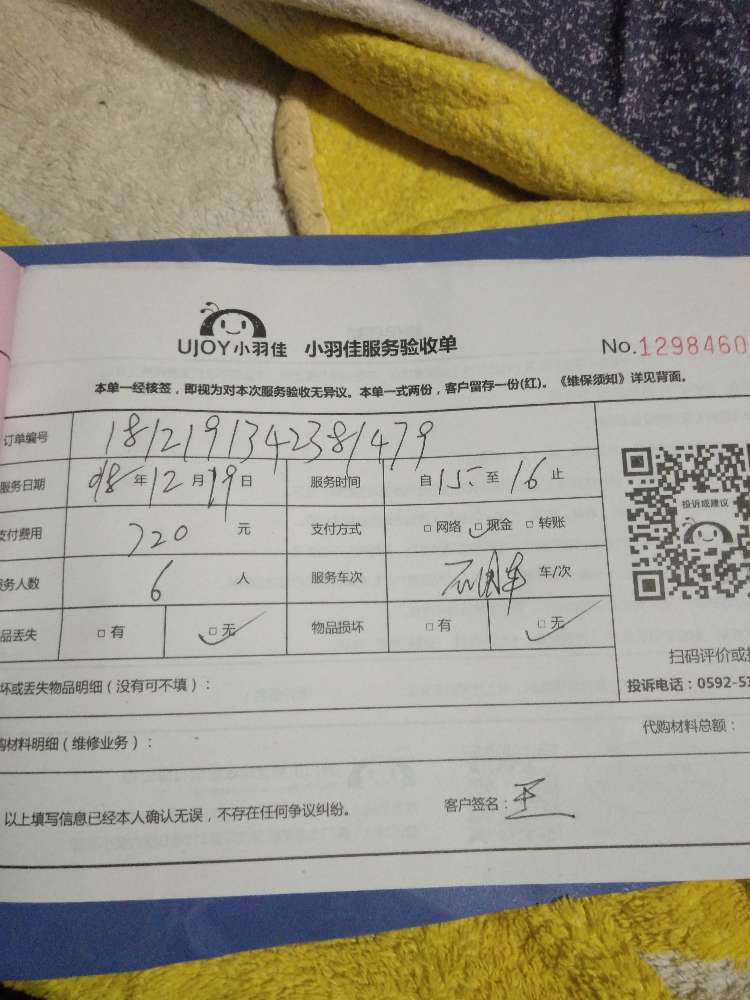 UJOY小羽佳 小羽佳服务验收单 No.1298460
本单一经核签，即视为对本次服务验收无异议。本单一式两份，客户留存一份(红)。《维保须知》详见背面。
订单编号 1812191342381479
服务日期 年12月19日 服务时间 自15至16止
支付费用 720元 支付方式 □网络 □现金 □转账
务人数 6人 服务车次 车/次
品丢失 □有 □无 物品损坏 □有 □无
投诉或建议
扫码评价或
坏或丢失物品明细（没有可不填）： 投诉电话：0592-51
购材料明细（维修业务）： 代购材料总额：
以上填写信息已经本人确认无误，不存在任何争议纠纷。 客户签名：王